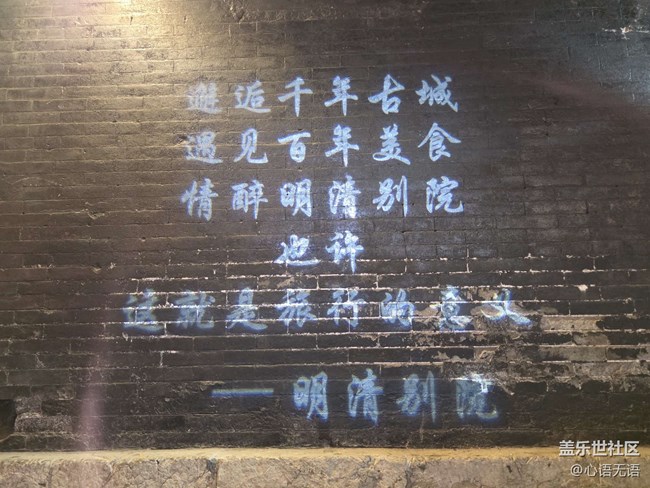 邂逅千年古城
遇见百年美食
情醉明清别院
也许
这就是旅行的意义
——明清别院
盖乐世社区
@心语无语